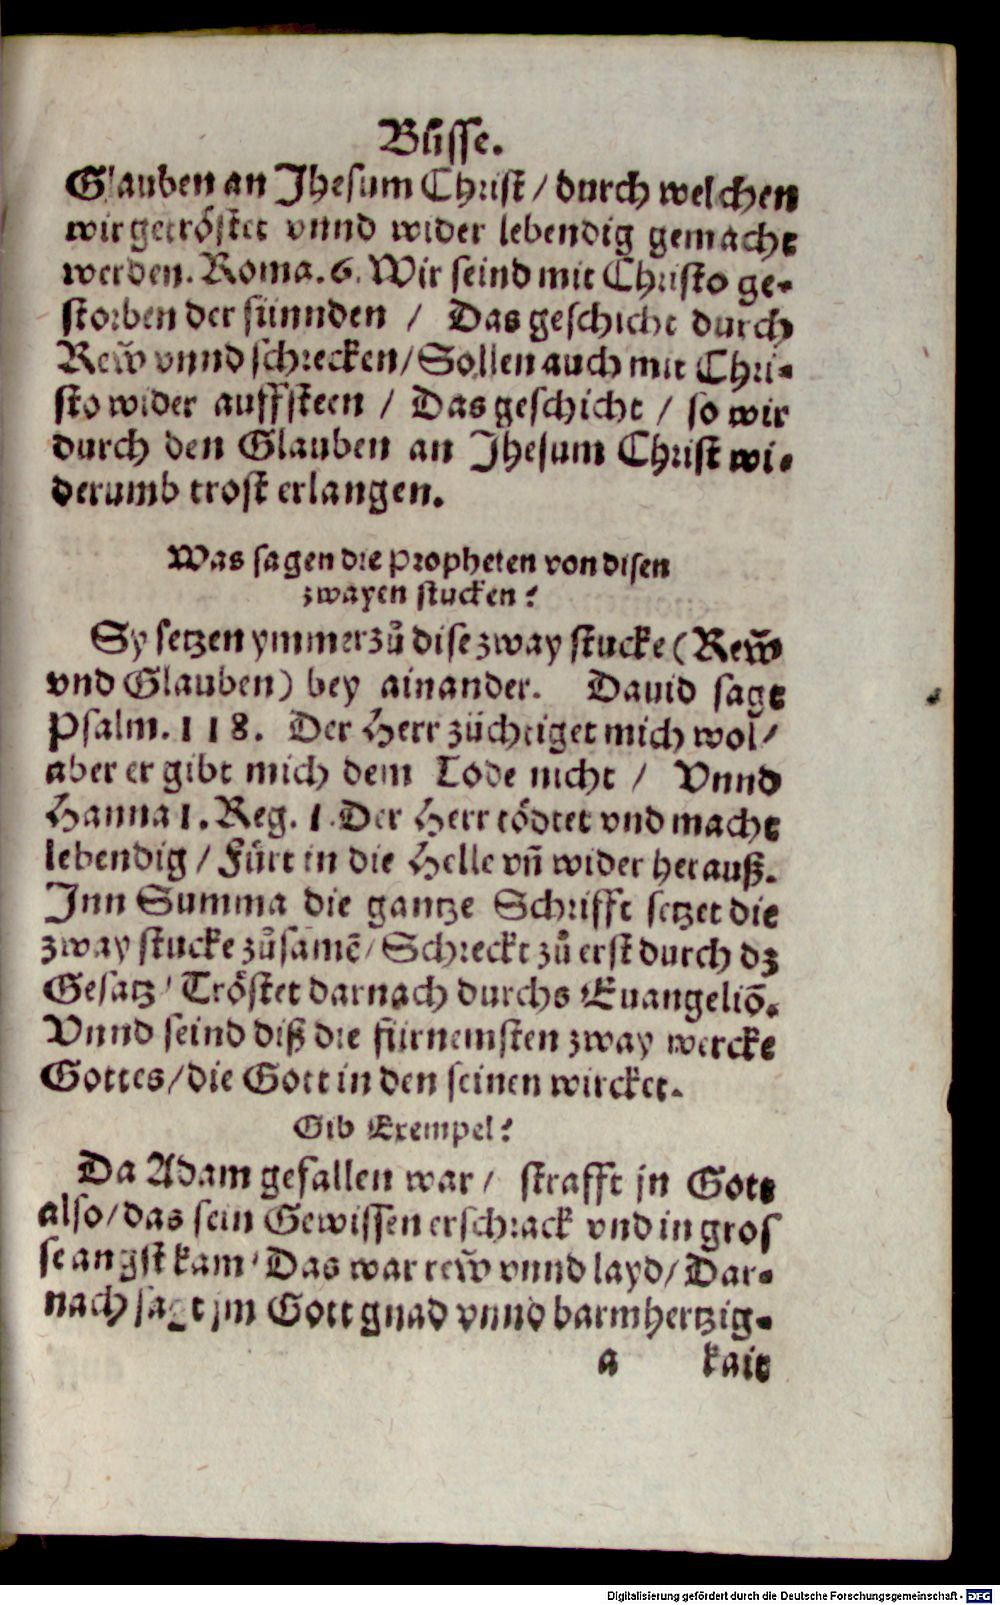 Bůsse.
Glauben an Jhesum Christ / durch welchen
wir getröstet vnnd wider lebendig gemacht
werden. Roma. 6. Wir seind mit Christo ge-
storben der sünnden / Das geschicht durch
Rew̃ vnnd schrecken / Sollen auch mit Chri-
sto wider auffsteen / Das geschicht / so wir
durch den Glauben an Jhesum Christ wi-
derumb trost erlangen.
Was sagen die Propheten von disen
zwayen stucken?
Sy setzen ymmerzů dise zway stucke (Rew̃
vnd Glauben) bey ainander. Dauid sagt
Psalm. 118. Der Herr züchtiget mich wol /
aber er gibt mich dem Tode nicht / Vnnd
Hanna 1. Reg. 1. Der Herr tödtet vnd macht
lebendig / Fürt in die Helle vñ wider herauß.
Inn Summa die gantze Schrifft setzet die
zway stucke zůsamẽ / Schreckt zů erst durch dz
Gesatz / Tröstet darnach durchs Euangeliõ.
Vnnd seind diß die fürnemsten zway wercke
Gottes / die Gott in den seinen wircket.
Gib Exempel?
Da Adam gefallen war / strafft jn Gott
also / das sein Gewissen erschrack vnd in gros
se angst kam / Das war rew̃ vnnd layd / Dar-
nach sagt jm Gott gnad vnnd barmhertzig-
a kait
Digitalisierung gefördert durch die Deutsche Forschungsgemeinschaft - DFG